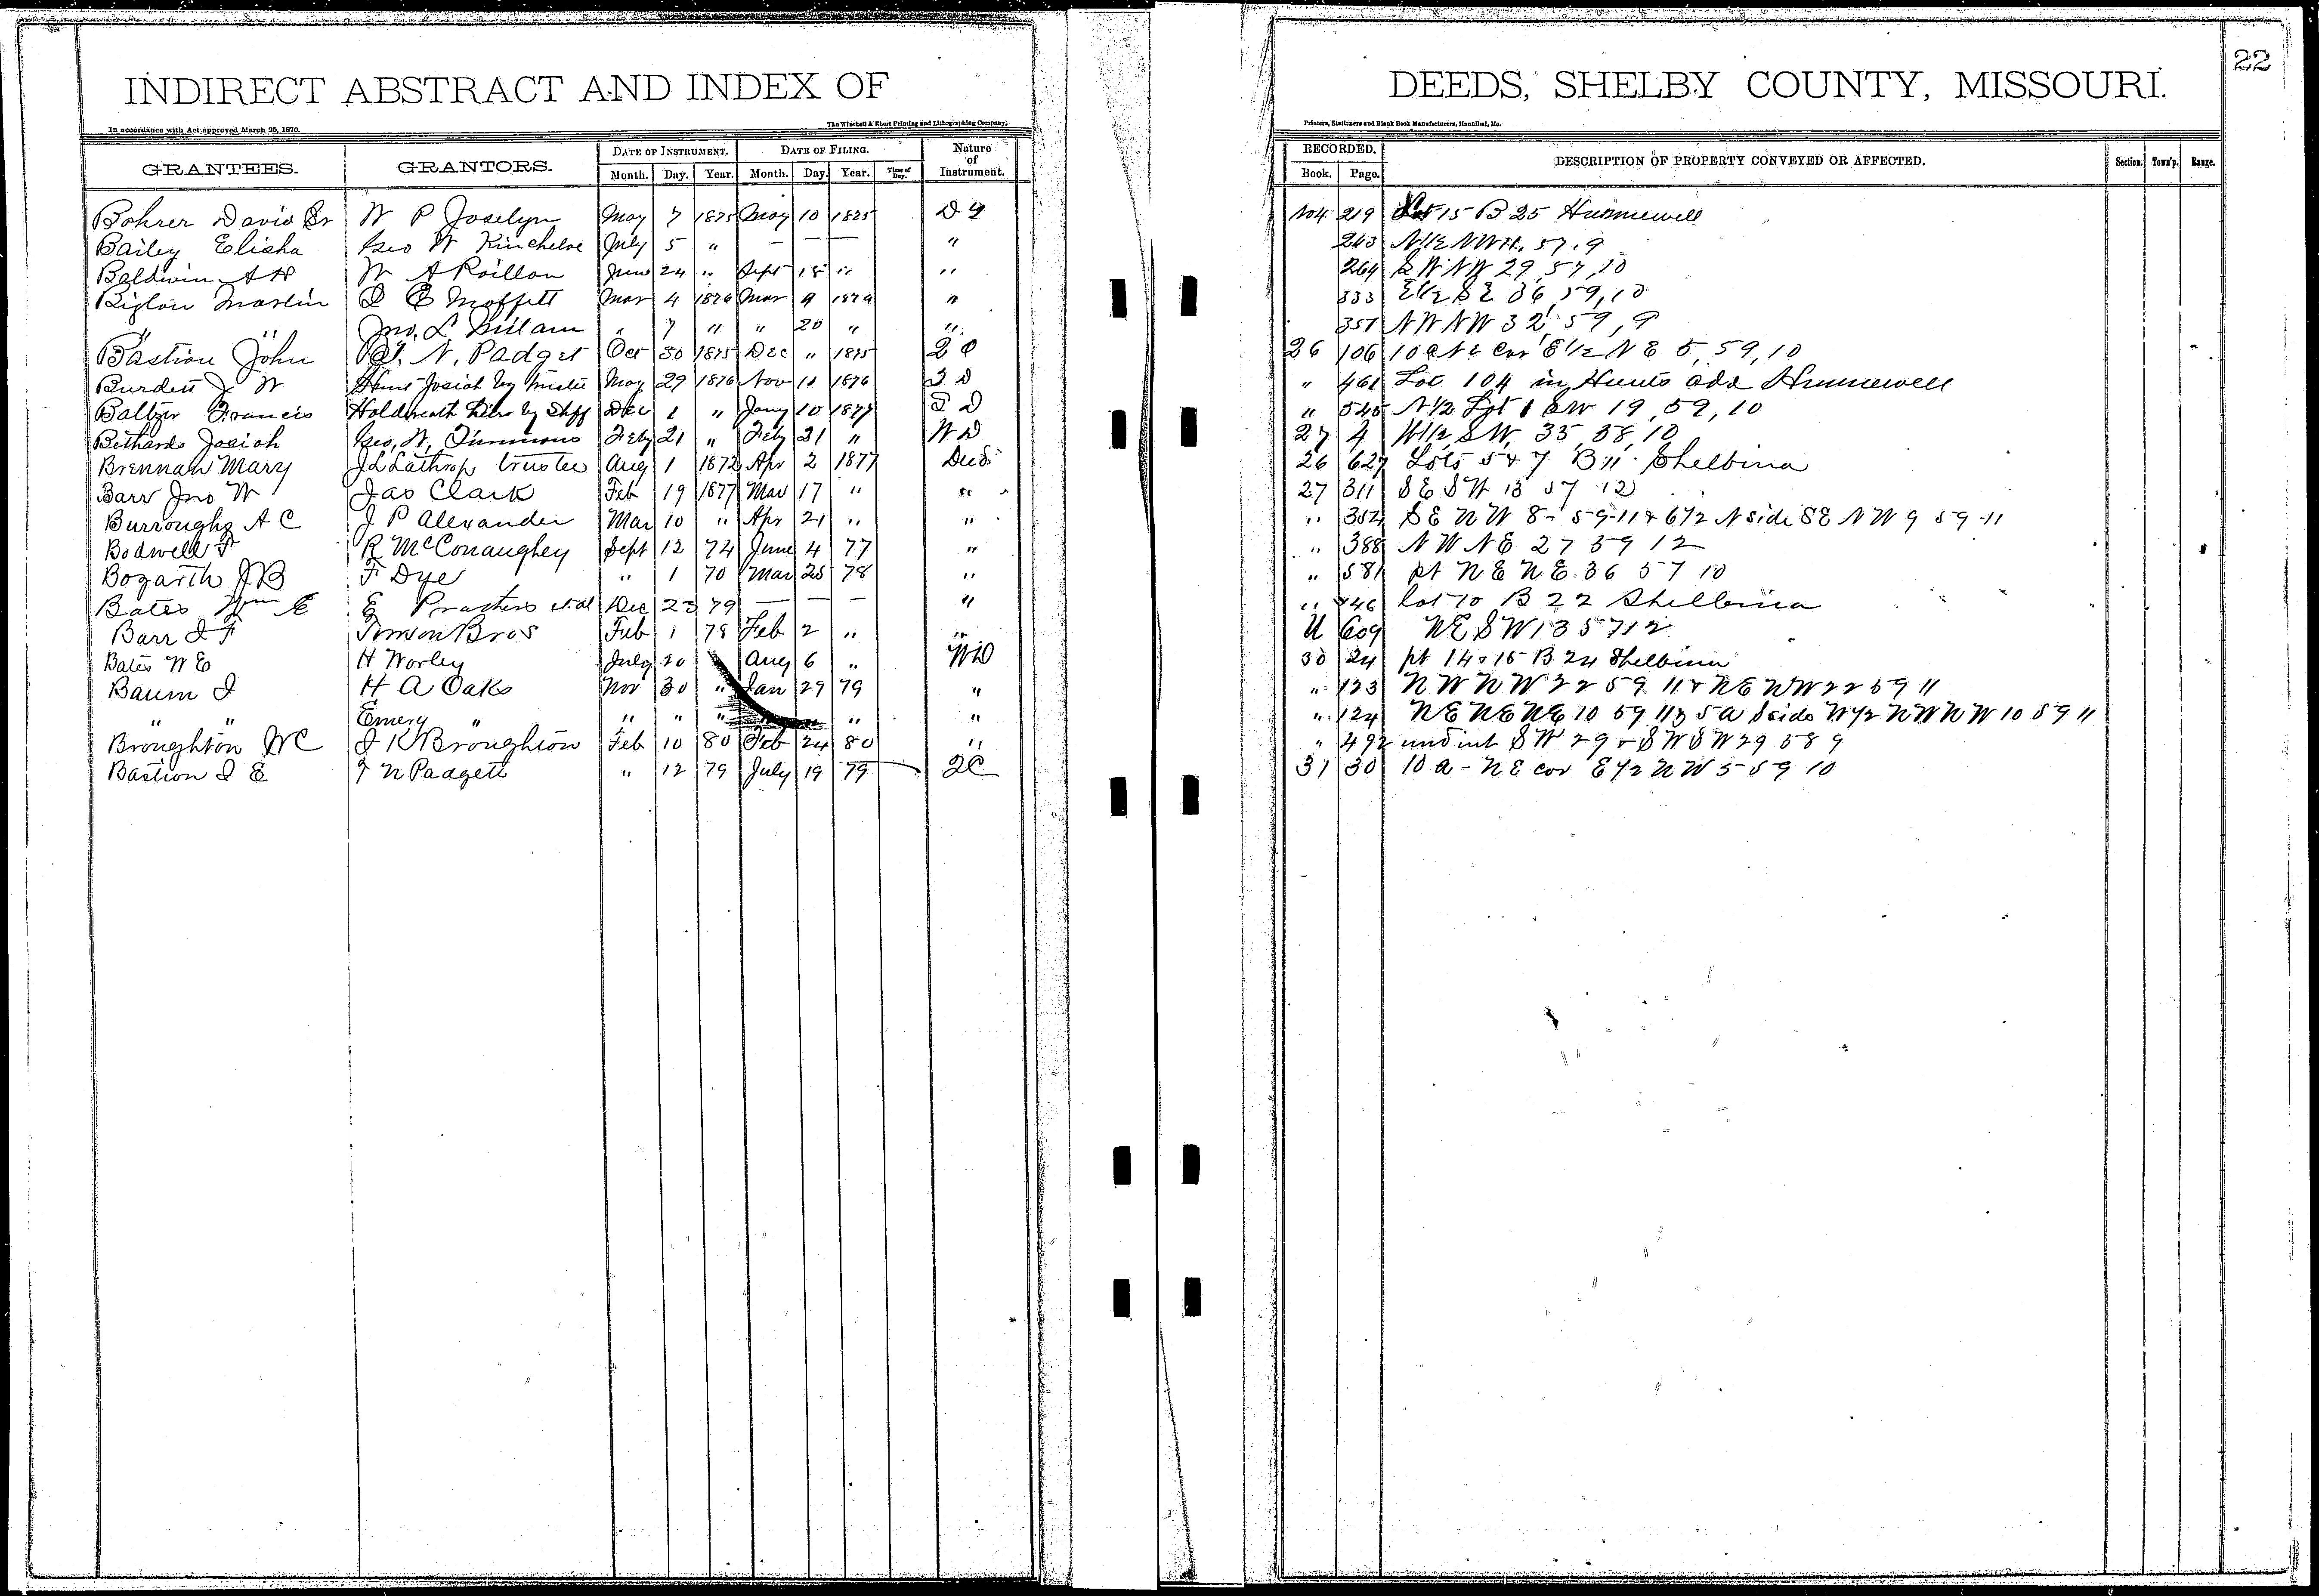 INDIRECT ABSTRACT AND INDEX OF DEEDS, SHELBY COUNTY, MISSOURI. 22
In accordance with Act approved March 25, 1870. The Winchell & Ebert Printing and Lithographing Company, Printers, Stationers and Blank Book Manufacturers, Hannibal, Mo.
GRANTEES. GRANTORS. DATE OF INSTRUMENT. DATE OF FILING. Nature of Instrument. RECORDED. DESCRIPTION OF PROPERTY CONVEYED OR AFFECTED. Section. Town'p. Range.
Month. Day. Year. Month. Day. Year. Time of Day. Book. Page.
Bohrer David Sr W P Joselyn May 7 1875 May 10 1875 219 Lot 15 B 25 Hunnewell
Bailey Elisha Geo W Kincheloe July 5 " — — — " 243 57, 9
Baldwin A H W A Poillon June 24 " Sept 18 " " 264 S W N W 29, 57, 10
Martin Moffett Mar 4 1876 Mar 9 1876 " 333 E 1/2 S E 36, 59, 10
" " Jno. L " 7 " " 20 " " 357 N W N W 32, 59, 9
Bastion John T. N. Padget Oct 30 1875 Dec " 1875 26 106 10 a N E Cor E 1/2 N E 5, 59, 10
Burdett J W Hunt Josiah by trustee May 29 1876 Nov 10 1876 T D " 461 Lot 104 in Hunts add Hunnewell
Baltzer Francis heirs by Shff Dec 1 " Jany 10 1877 S D " 545 N 1/2 Lot 1 S W 19, 59, 10
Bethards Josiah Geo, W, Timmons Feby 21 " Feby 21 " W D 27 4 W 1/2 S W, 35, 58, 10
Brennan Mary J L Lathrop trustee Aug 1 1872 Apr 2 1877 Deed 26 627 Lots 5 & 7 B 11 Shelbina
Barr Jno W Jas Clark Feb 19 1877 Mar 17 " " 27 311 S E S W 13 57 12
Burroughs A C J P Alexander Mar 10 " Apr 21 " " " 352 S E N W 8 - 59 - 11 & 6 1/2 N side S E N W 9 59 - 11
Bodwell F R McConaughey Sept 12 74 June 4 77 " " 388 N W N E 27 59 12
Bogarth J B F Dye " 1 70 Mar 25 78 " " 581 pt N E N E 36 57 10
Bates Wm E E et al Dec 23 79 — — — " " 746 lot 10 B 22 Shelbina
Barr I F Timson Bros Feb 1 78 Feb 2 " " U 609 N E S W 13 57 12
Bates W E H Worley July 20 " Aug 6 " W D 30 24 pt 14 & 15 B 24 Shelbina
Baum I H A Oaks Nov 30 " Jan 29 79 " " 123 N W N W 22 59 11 & N E N W 22 59 11
" " Emery " " " " " " " " 124 N E N E N E 10 59 11 & 5 a S side W 1/2 N W N W 10 59 11
Broughton W C I K Broughton Feb 10 80 Feb 24 80 " " 492 und int S W 29 & S W S W 29 58 9
Bastion I E T N Padgett " 12 79 July 19 79 2C 31 30 10 a - N E cor E 1/2 N W 5 - 59 10